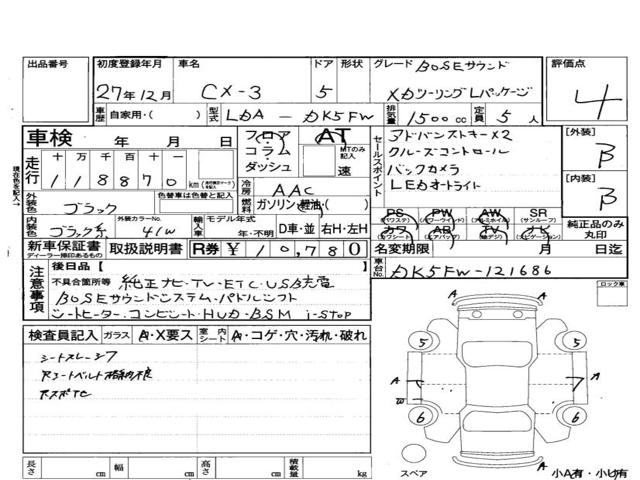 出品番号 初度登録年月 車名 ドア 形状 グレード BOSEサウンド 評価点
27年12月 CX-3 5 XDツーリングLパッケージ 4
車歴 自家用・( ) 型式 LDA - DK5FW 排気量 1500cc 定員 5人
車検 年 月 日 フロア AT セールスポイント アドバンストキー×2 [外装]
走行 十 万 千 百 十 一 コラム MTのみ記入 クルーズコントロール B
1 1 8 8 7 0 km ダッシュ 速 バックカメラ [内装]
冷房 AAC LEDオートライト B
外装色 ブラック 色替車は色替と記入 燃料 ガソリン・軽油・( ) PS PW AW SR
(パワステ) (パワーウインド) (アルミホイル) (サンルーフ)
内装色 ブラック系 外装カラーNo. 41W 輸入車 モデル年式 年・不明 D車・並 右H・左H カワ AB TV ナビ 純正品のみ丸印
(カワシート) (エアバック) (純テレビ) (ナビゲーション)
新車保証書 取扱説明書 R券 ¥ 10,780 名変期限 月 日迄
ディーラー捺印あるもの
車台No. DK5FW-121686
注意事項 後日品【 】
不具合箇所等 純正ナビ・TV・ETC・USB充電
BOSEサウンドシステム・パドルシフト
シートヒーター・コンビシート・HUD・BSM i-STOP
ロック車
検査員記入 ガラス A・X要ス 室内シート A・コゲ・穴・汚れ・破れ
シートスレ・シワ
5 5
A A 7
W
6 6
A
スペア 小A有・小U有
長さ cm 幅 cm 高さ cm 積載量 kg
現在色を記入→